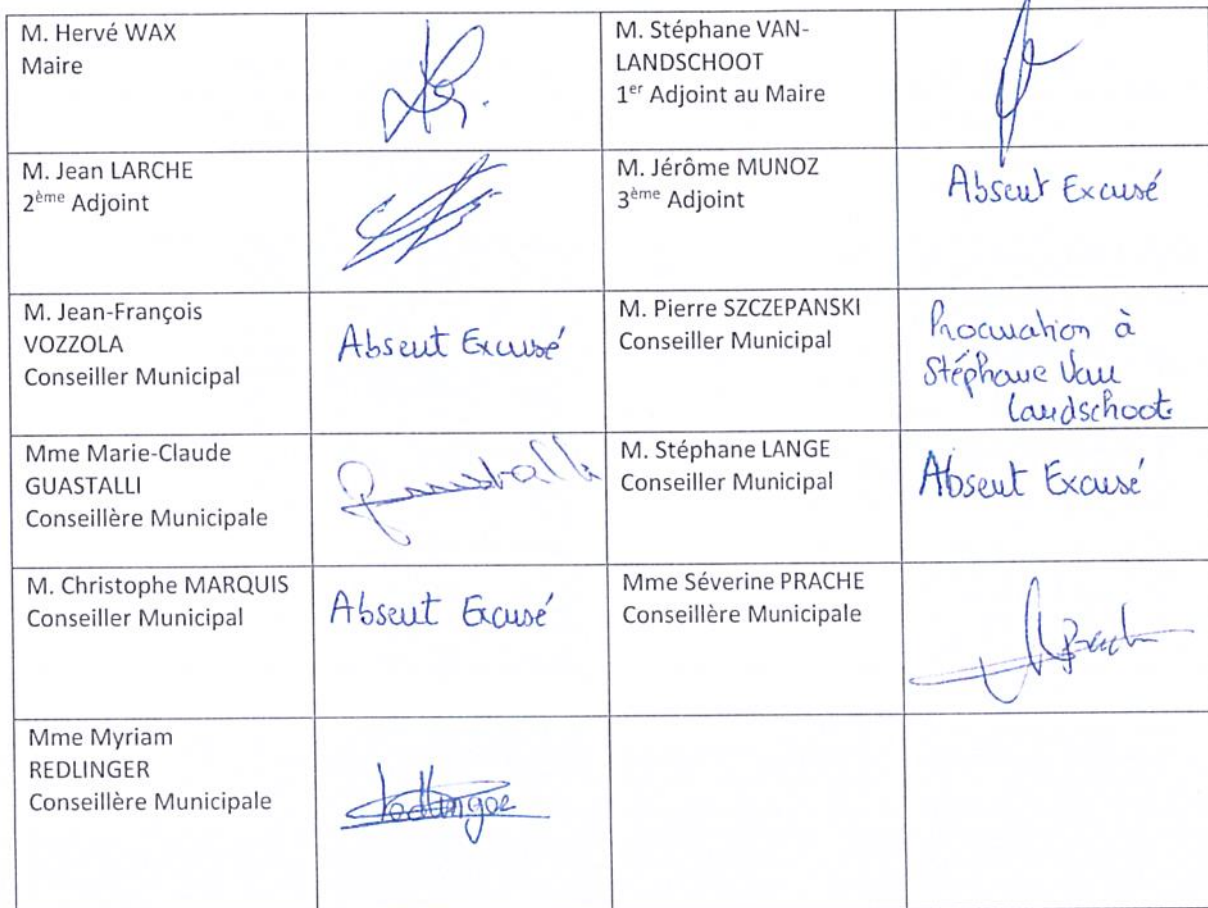 M. Hervé WAX
Maire
M. Stéphane VAN-
LANDSCHOOT
1er Adjoint au Maire
M. Jean LARCHE
2ème Adjoint
M. Jérôme MUNOZ
3ème Adjoint
Absent Excusé
M. Jean-François
VOZZOLA
Conseiller Municipal
Absent Excusé
M. Pierre SZCZEPANSKI
Conseiller Municipal
Procuration à
Stéphane Van
Landschoot
Mme Marie-Claude
GUASTALLI
Conseillère Municipale
Guastalli
M. Stéphane LANGE
Conseiller Municipal
Absent Excusé
M. Christophe MARQUIS
Conseiller Municipal
Absent Excusé
Mme Séverine PRACHE
Conseillère Municipale
Mme Myriam
REDLINGER
Conseillère Municipale